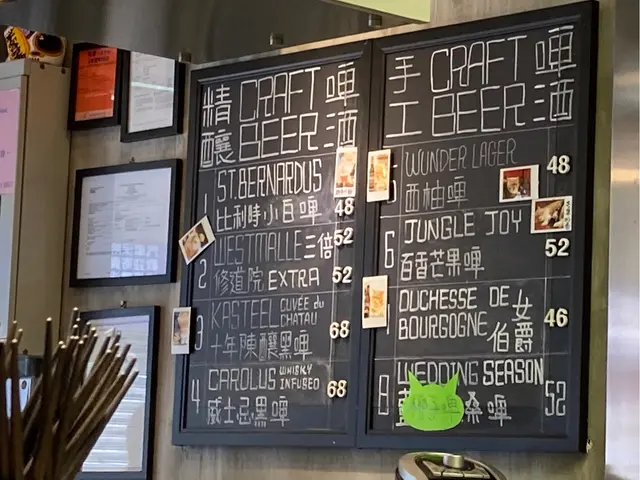 精 CRAFT 啤
釀 BEER 酒
1 ST.BERNARDUS
比利時小白啤 48
WESTMALLE 三倍 52
2 修道院 EXTRA 52
KASTEEL CUVÉE du
CHATAU
3 68
十年陳釀黑啤
CAROLUS WHISKY
INFUSED
4 68
威士忌黑啤
手 CRAFT 啤
工 BEER 酒
WUNDER LAGER 48
西柚啤
JUNGLE JOY
6 52
百香芒果啤
DUCHESSE DE 女
BOURGOGNE 伯爵 46
WEDDING SEASON
8 桑啤 52